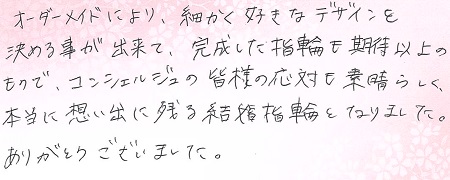 オーダーメイドにより、細かく好きなデザインを
決める事が出来て、完成した指輪も期待以上の
もので、コンシェルジュの皆様の応対も素晴らしく、
本当に想い出に残る結婚指輪となりました。
ありがとうございました。